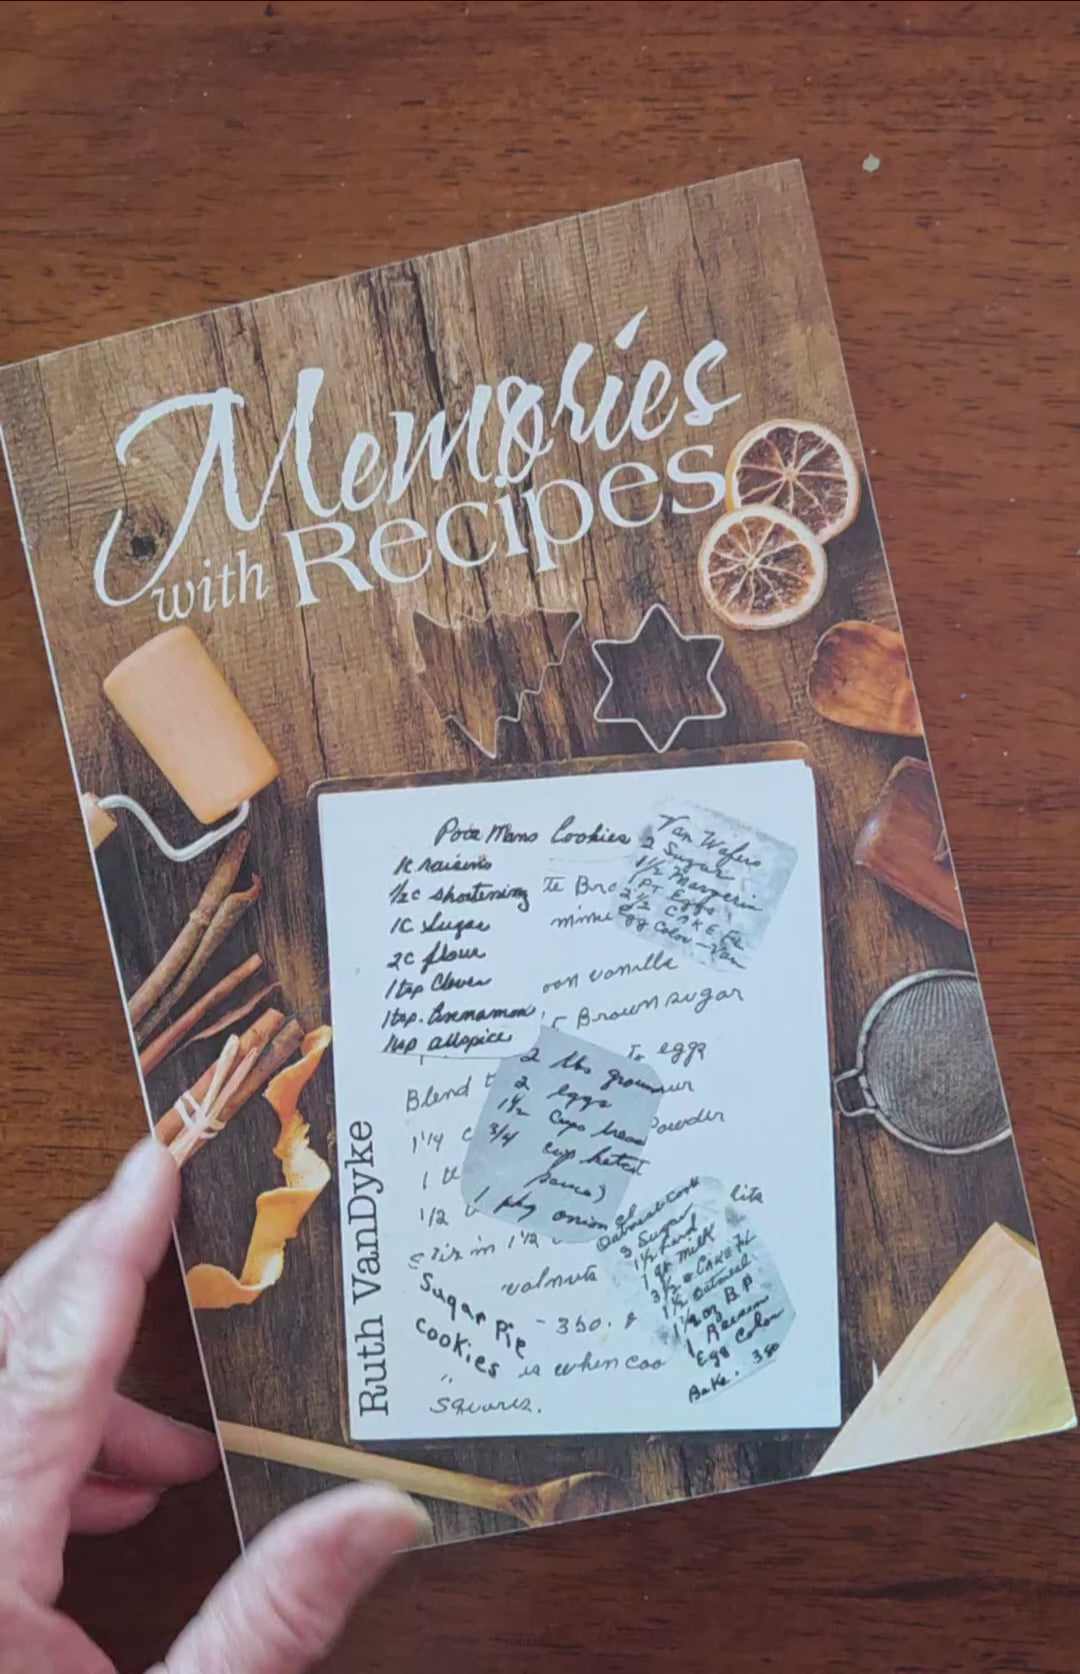 Memories
with Recipes
Poor Mans Cookies
1c raisins
1/2c shortening
1c Sugar
2c flour
1tsp Cloves
1tsp. Cinnamon
1tsp allspice
Van Wafers
2 Sugar
1 1/2 Margerin
1 PT Eggs
2 1/2 CAKE FL
Egg Color - Van
te Bro
minu
oon vanilla
Brown sugar
eggs
Blend
Powder
1 1/4 c
1/2
2 lbs groun
2 eggs
1 1/2 cups bread
3/4 cup ketch
sauce)
1 pkg onion
Oatmeal Cook
3 Sugar
1 1/2 Lard
1 qt Milk
3 1/2 # CAKE FL
1 1/2 Oatmeal
1 1/4 oz B.P
1 Raisin
Egg Color
Bake. 380
Stir in 1 1/2
walnuts
Sugar Pie
cookies
- 350.
is when coo
Squares.
Ruth VanDyke